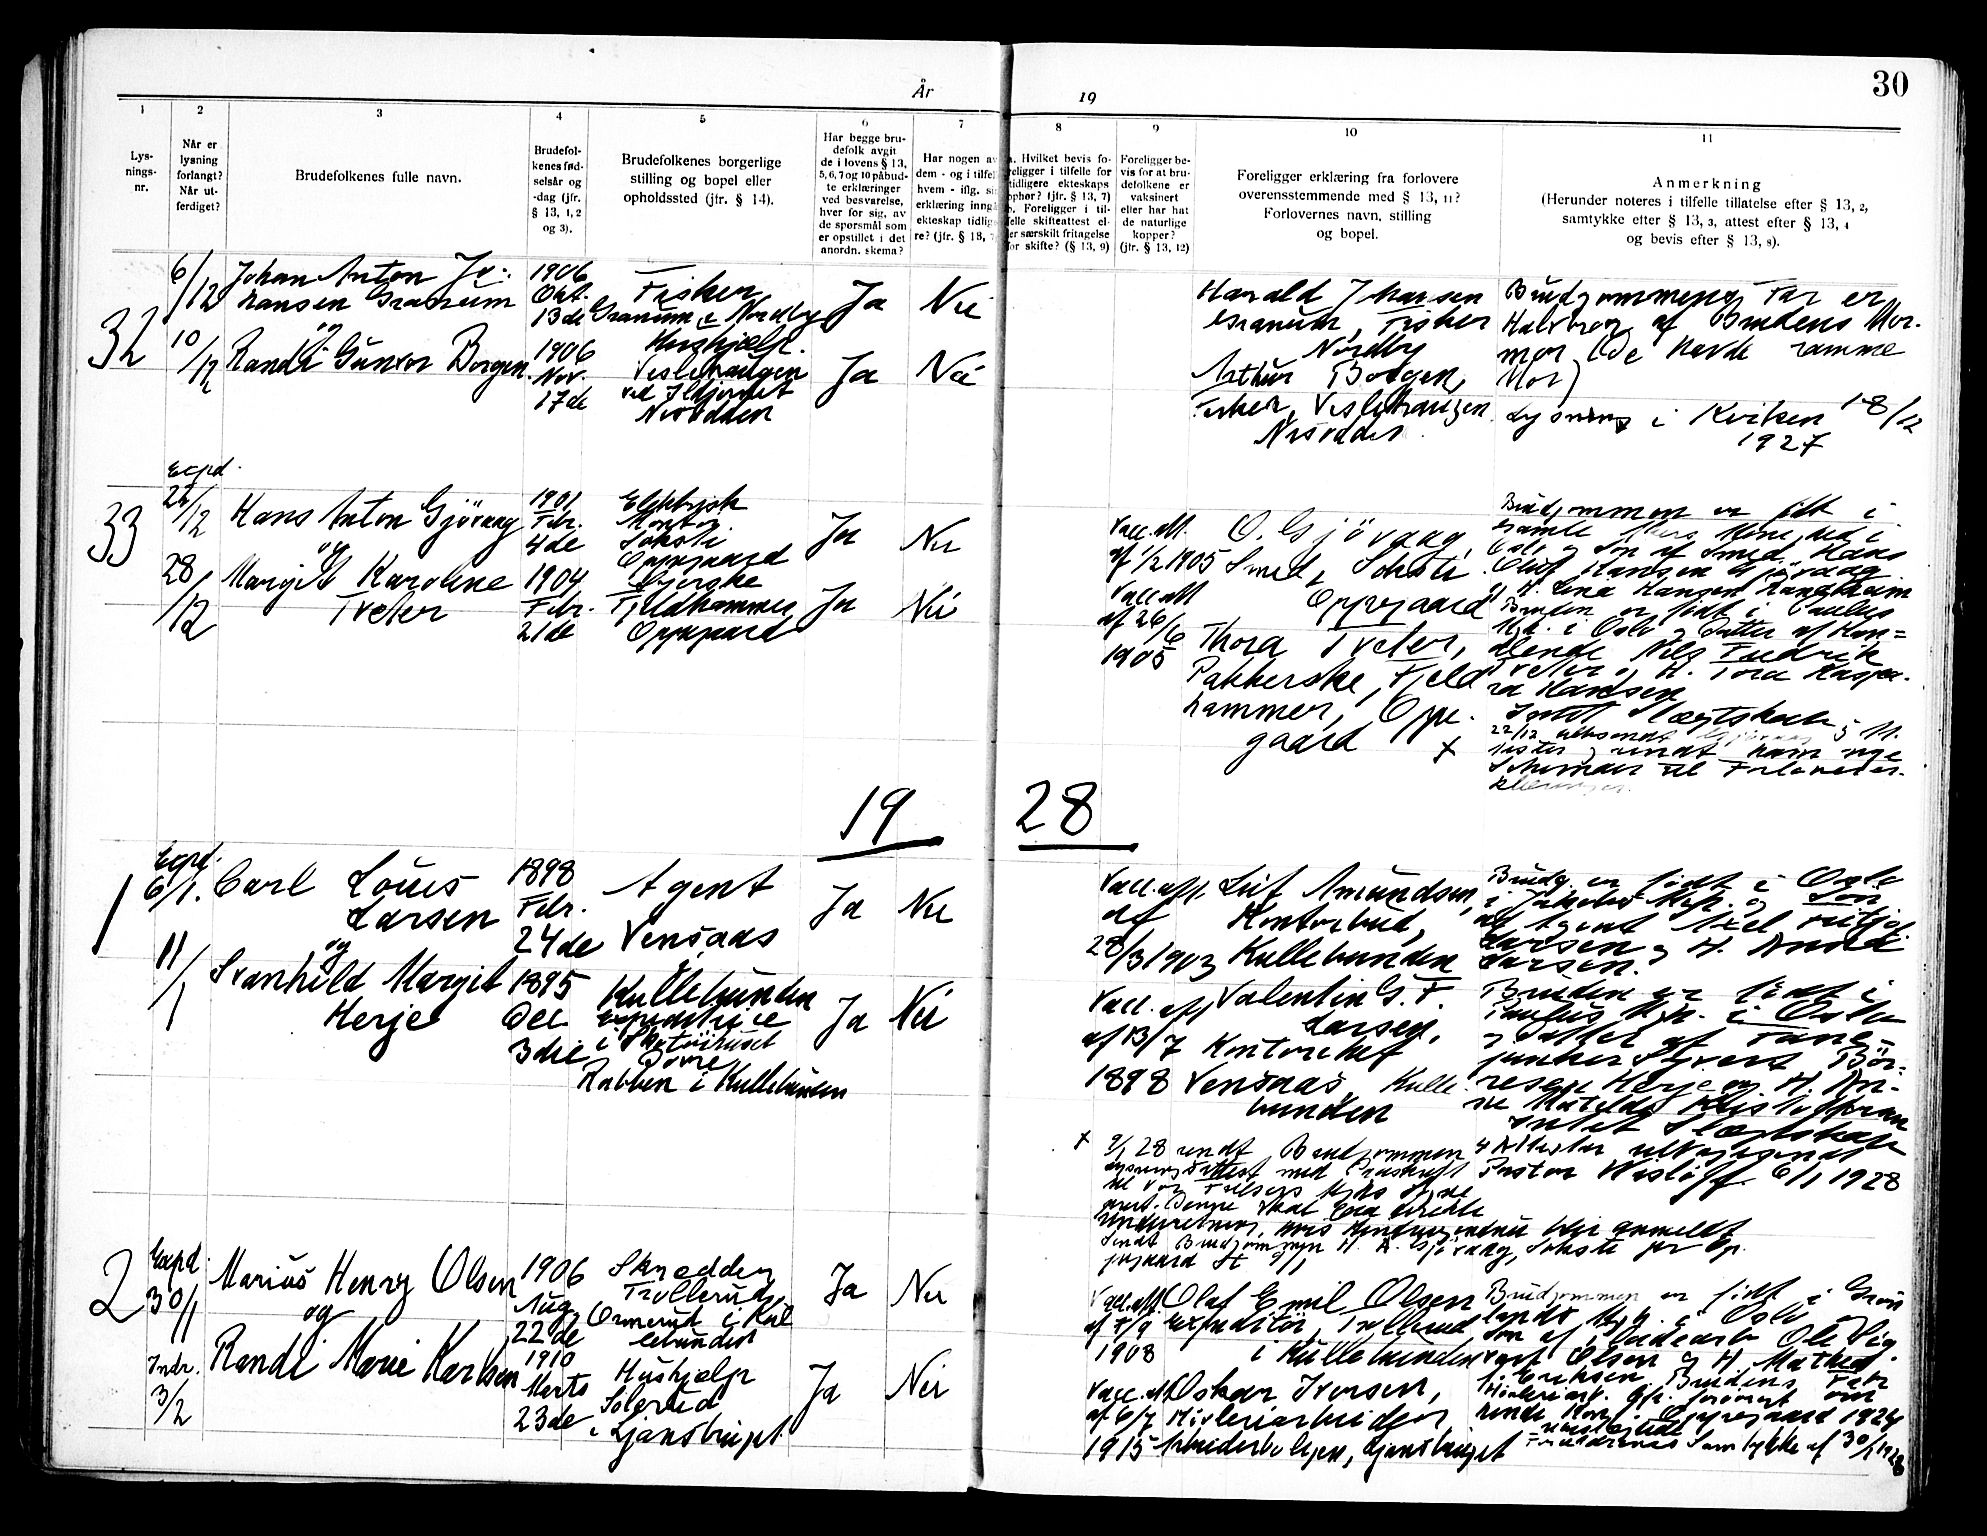 År
19
30
1
2
3
4
5
6
7
8
9
10
11
Lys-
nings-
nr.
Når er
lysning
forlangt?
Når ut-
ferdiget?
Brudefolkenes fulle navn.
Brudefol-
kenes fød-
selsår og
-dag (jfr.
§ 13, 1, 2
og 3).
Brudefolkenes borgerlige
stilling og bopel eller
opholdssted (jfr. § 14).
Har begge bru-
defolk avgit
de i lovens § 13,
5, 6, 7 og 10 påbud-
te erklæringer
ved besvarelse,
hver for sig, av
de spørsmål som
er opstillet i det
anordn. skema?
Har nogen av
dem - og i tilfel
hvem - iflg. si
erklæring inngå
ekteskap tidlig
re? (jfr. § 13, 7
a. Hvilket bevis fo-
religger i tilfelle for
tidligere ekteskaps
ophør? (jfr. § 13, 7)
b. Foreligger i til-
felle skifteattest el-
ler særskilt fritagelse
for skifte? (§ 13, 9)
Foreligger be-
vis for at bru-
defolkene er
vaksinert
eller har hat
de naturlige
kopper?
(jfr. § 13, 12)
Foreligger erklæring fra forlovere
overensstemmende med § 13, 11?
Forlovernes navn, stilling
og bopel.
Anmerkning
(Herunder noteres i tilfelle tillatelse efter § 13, 2,
samtykke efter § 13, 3, attest efter § 13, 4
og bevis efter § 13, 8).
32
6/12
10/12
Johan Anton Jo-
hansen Granum
og
Randi Gunvor Borgen
1906
Okt.
13de
1906
Nov.
17de
Fisker
Granum i Nordby
Hushjælp
Veslehaugen
ved Ildjernet
Nesodden
Ja
Ja
Nei
Nei
Harald Johansen
Granum, Fisker
Nordby
Arthur Borgen,
Fisker, Veslehaugen
Nesodden
Brudgommens Far er
Halvbror af Brudens Mor-
mor (De havde samme
Mor)
Lysning i Kviken 18/12
1927
33
Exped.
22/12
28/12
Hans Anton Gjövaag
og
Margit Karoline
Tveter
1901
Febr.
4de
1904
Febr.
21de
Elektrisk
Montör
Sohsti
Oppegaard
Syerske
Fjeldhammer
Oppegaard
Ja
Ja
Nei
Nei
Vacc.att.
af 1/2 1905
Vacc.att
af 26/6
1905
O. Gjövaag,
Smed, Sohsti
Oppegaard
Thora Tveter,
Pakkerske, Fjeld
hammer, Oppe-
gaard x
Brudgommen er född i
Gamle Akers Menighed i
Oslo og Sön af Smed Hans
Olaf Hansen Gjövaag
Bruden er född i Paulus
Mgh. i Oslo og Datter af Han-
dlende Nils Fredrik
Tveter og H. Tora Kaspa-
ra Hansen
Intet Slægtskab
19 28
1
Exped.
6/1.
11/1
Carl Louis
Larsen
og
Svanhild Margit
Herje
1898
Febr.
24de
1895
Dec
3die
Agent
Vensaas
Kullebunden
Expeditrice
i Skotöihuset
Dovre
Rabben i Kullebunden
Ja
Ja
Nei
Nei
Vacc.att.
af
28/3 1903
Vacc.att
af 13/7
1898
Leif Amundsen,
Kontorbud,
Kullebunden
Valentin G. F.
Larsen,
Kontorchef
Vensaas Kulle
bunden
Brudg. er född i Oslo
i Jakobs Mgh. og Sön
af Agent Axel Fritjof
Larsen og H.
Larsen.
Bruden er född i
Paulus Mgh. i Oslo
og Datter af Fane-
junker Syvert Bör-
resen Herje og H. An-
Intet Slægtskap
4 Attester
Pastor Wislöff 6/1 1928
x 9/1 28 sendt Brudgommen
Lysningsattest med Paaskrift
Sendt Brudgommen H. A. Gjövaag, Sohsti pr Op-
pegaard St 9/1
2
Exped
30/1
Indr.
3/2
Marius Henry Olsen
og
Randi Marie Karlsen
1906
Aug
22de
1910
Marts
23de
Skrædder
Trollerud,
Ormerud i Kul
lebunden
Hushjælp
Solerud
i Ljansbruget
Ja
Ja
Nei
Nei
Vacc.att.
af 7/9
1908
Vacc.att
af 6/7
1915
Olaf Emil Olsen
Expeditör, Trollerud
i Kullebunden
Oskar Iversen,
Hövleriarbeider,
Arbeiderboligen, Ljansbruget
Brudgommen er född i Grön
lands Mgh. i Oslo
Sön af Ole Sig
vart Olsen og H. Mathea
f. Eriksen, Brudens Far
Oppegaard 1924
Forældrenes Samtykke af 30/1 1928